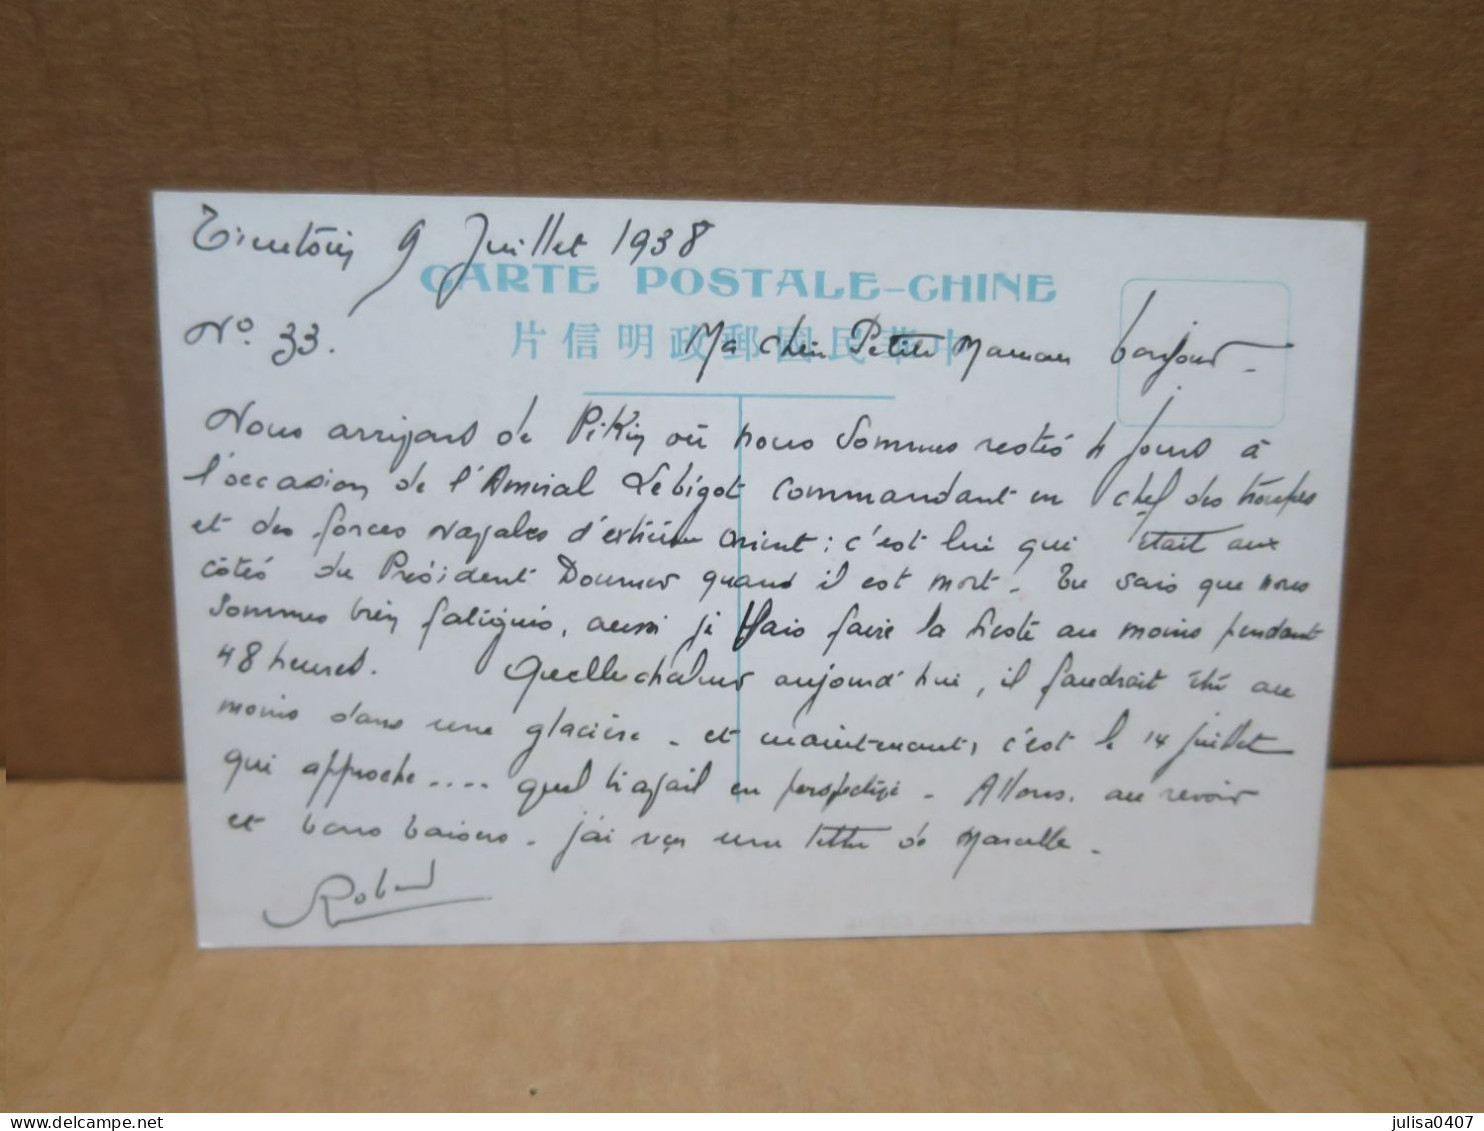 Tientsin 9 Juillet 1938
CARTE POSTALE-CHINE
N° 33.
中華民國郵政明信片
Ma chère Petite Maman bonjour -
Nous arrivons de Pékin où nous sommes restés 4 jours à
l'occasion de l'Amiral Lebigot commandant en chef des troupes
et des forces navales d'extrême orient : c'est lui qui était aux
côtés du Président Doumer quand il est mort. Tu sais que nous
sommes bien fatigués, aussi je vais faire la sieste au moins pendant
48 heures. Quelle chaleur aujourd'hui, il faudrait être au
moins dans une glacière - et maintenant, c'est le 14 juillet
qui approche .... quel travail en perspective - Allons, au revoir
et bons baisers - j'ai reçu une lettre de Marcelle -
Robert
delcampe.net
julisa0407